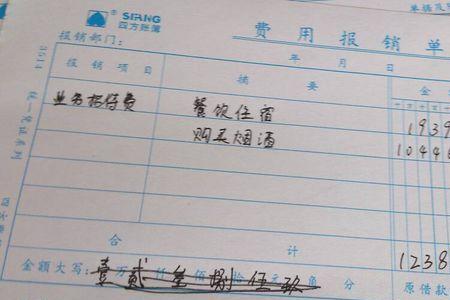 单据及
SIRNG
四方账簿
费用报销单
报销部门: 年 月 日
报销项目 摘要 金
业务招待费 餐饮住宿 1939
购买烟酒 1044
合 计 1238
金额大写: 壹 贰 叁 捌 伍 玖 分 原借款
3514 统一凭证系列